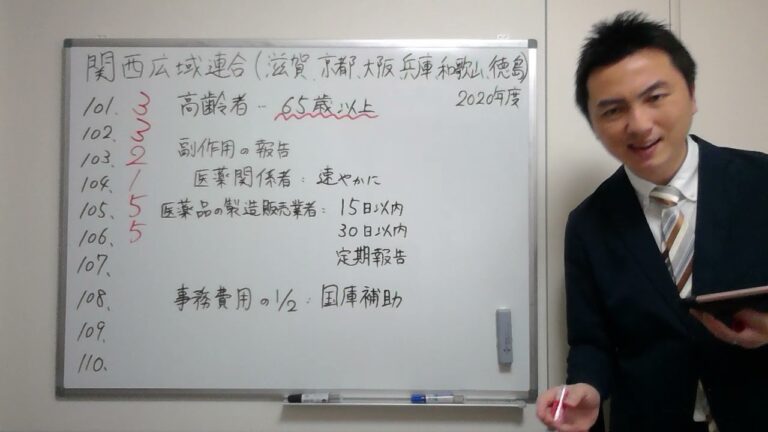 関西広域連合(滋賀、京都、大阪、兵庫、和歌山、徳島)
2020年度
101. 3 高齢者… 65歳以上
102. 3
103. 2 副作用の報告
104. 1 医薬関係者: 速やかに
105. 5 医薬品の製造販売業者: 15日以内
106. 5 30日以内
107. 定期報告
108. 事務費用の1/2: 国庫補助
109.
110.